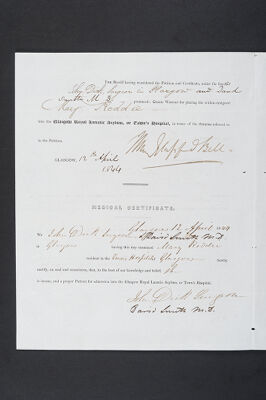 The Sheriff having considered the Petition and Certificate, under the hands of
John Dick, Surgeon in Glasgow and David
Smith M.D. produced, Grants Warrant for placing the within-designed
Mary Reddie
into the Glasgow Royal Lunatic Asylum, or Town's Hospital, in terms of the Statutes referred to
in the Petition.
Glasgow, 12th April
1844
MEDICAL CERTIFICATE.
Glasgow 12 April 1844
We John Dick Surgeon & David Smith M.D.
Glasgow having this day examined Mary Reddie
resident in the Town's Hospital Glasgow hereby
certify, on soul and conscience, that, to the best of our knowledge and belief she
is insane, and a proper Patient for admission into the Glasgow Royal Lunatic Asylum, or Town's Hospital.
John Dick Surgeon
David Smith M.D.